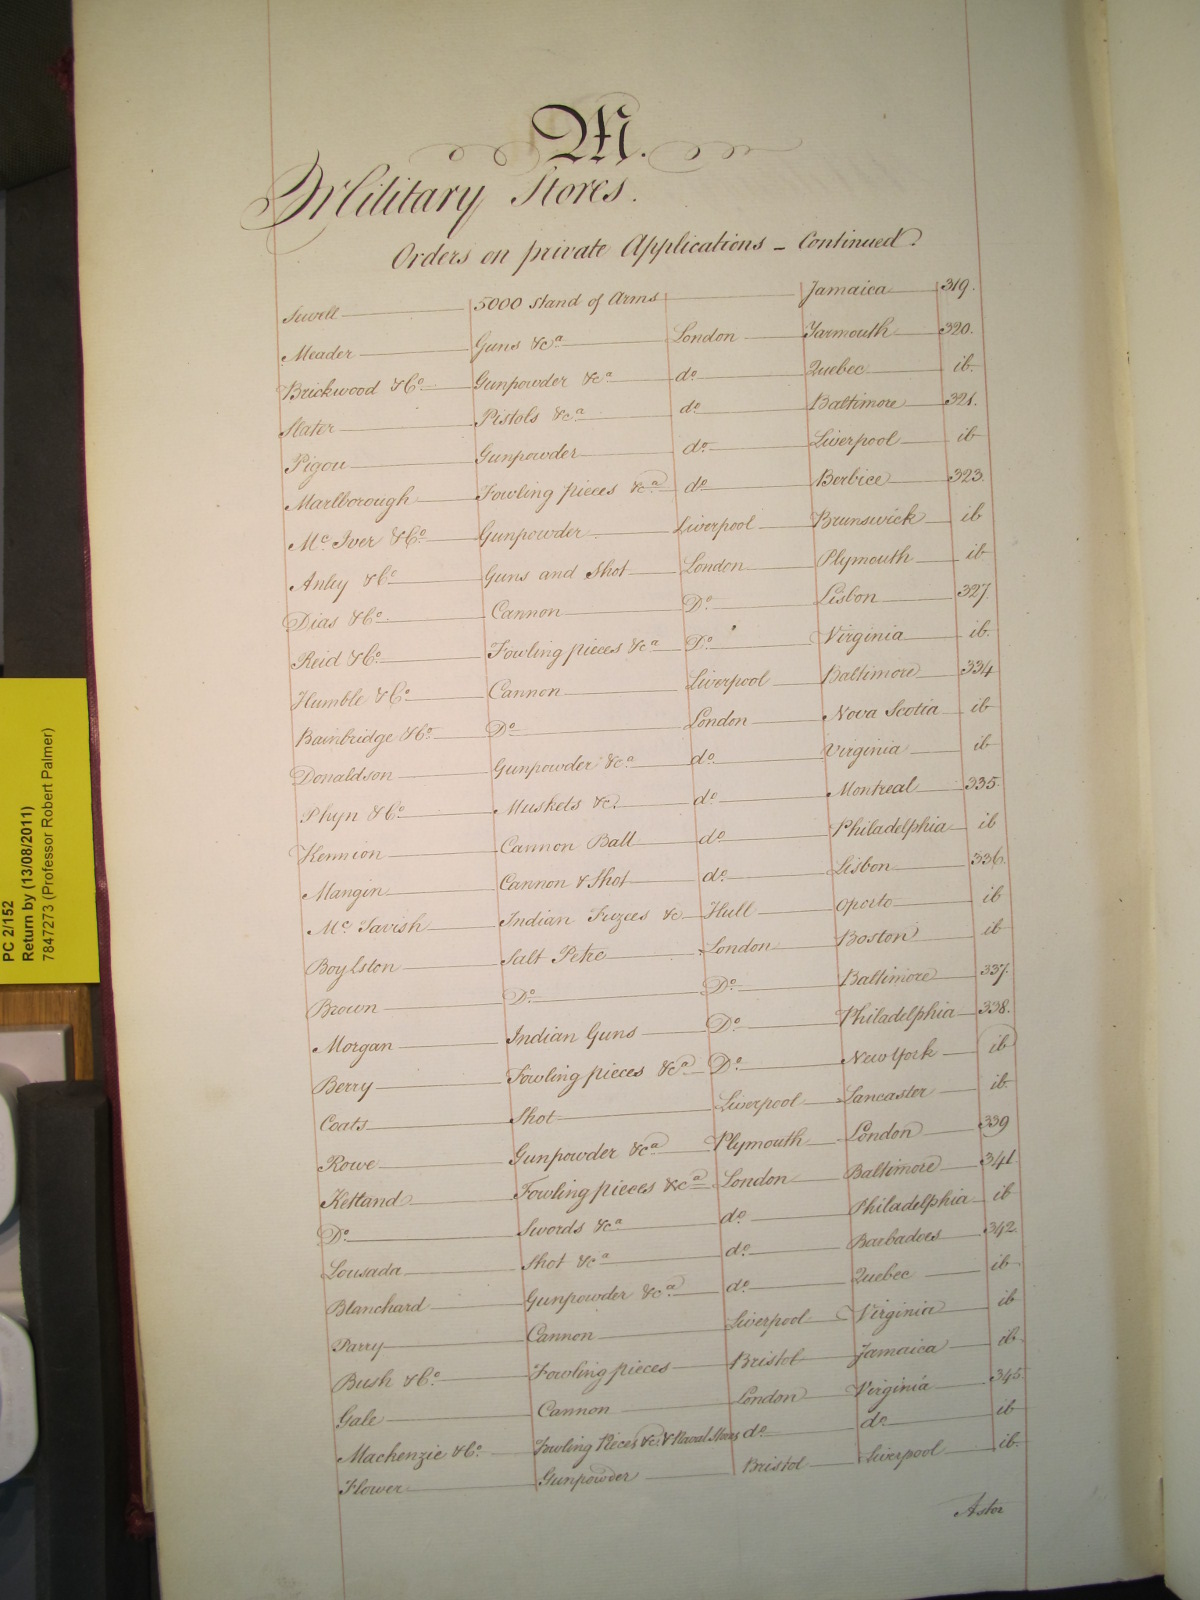 M.
Military Stores.
Orders on private Applications – Continued.
Sewell 5000 Stand of Arms Jamaica 319.
Meader Guns &cᵃ London Yarmouth 320.
Brickwood &Cº Gunpowder &cᵃ dº Quebec ib.
Slater Pistols &cᵃ dº Baltimore 321.
Pigou Gunpowder dº Liverpool ib
Marlborough Fowling pieces &cᵃ dº Berbice 323.
Mᶜ Iver &Cº Gunpowder Liverpool Brunswick ib
Anley &Cº Guns and Shot London Plymouth ib
Dias &Cº Cannon Dº Lisbon 327.
Reid &Cº Fowling pieces &cᵃ Dº Virginia ib.
Humble &Cº Cannon Liverpool Baltimore 334
Bainbridge &Cº Dº London Nova Scotia ib
Donaldson Gunpowder &cᵃ dº Virginia ib
Phyn &Cº Muskets &c. dº Montreal 335.
Kennion Cannon Ball dº Philadelphia ib
Mangin Cannon & Shot dº Lisbon 336.
Mᶜ Tavish Indian Fuzees &c Hull Oporto ib
Boylston Salt Petre London Boston ib
Brown Dº Dº Baltimore 337.
Morgan Indian Guns Dº Philadelphia 338.
Berry Fowling pieces &cᵃ Dº New York ib
Coats Shot Liverpool Lancaster ib
Rowe Gunpowder &cᵃ Plymouth London 339
Ketland Fowling pieces &cᵃ London Baltimore 341
Dº Swords &cᵃ dº Philadelphia ib
Lousada Shot &cᵃ dº Barbadoes 342.
Blanchard Gunpowder &cᵃ dº Quebec ib
Parry Cannon Liverpool Virginia ib
Bush &Cº Fowling pieces Bristol Jamaica ib.
Gale Cannon London Virginia 345.
Mackenzie &Cº Fowling Pieces &c. & Naval Stores dº dº ib
Flower Gunpowder Bristol Liverpool ib.
Astor
PC 2/152
Return by (13/08/2011)
7847273 (Professor Robert Palmer)